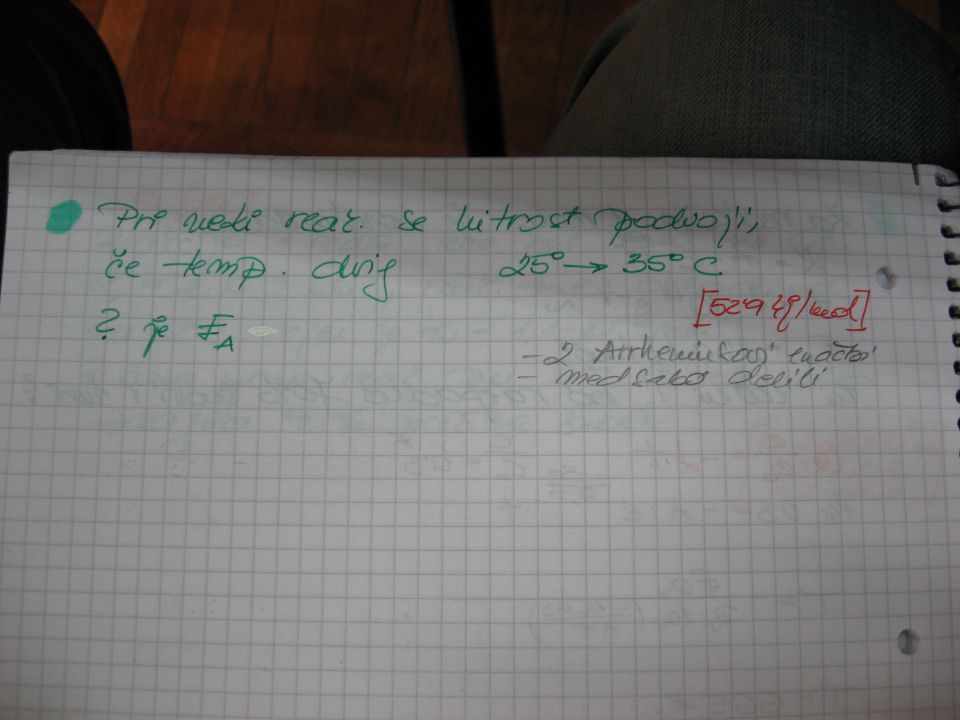 Pri neki reak. se hitrost podvoji,
če temp. dvig 25° → 35° C
[52,9 kJ/mol]
? je EA
- 2 Arrheniusovi enačbi
- med sabo delili